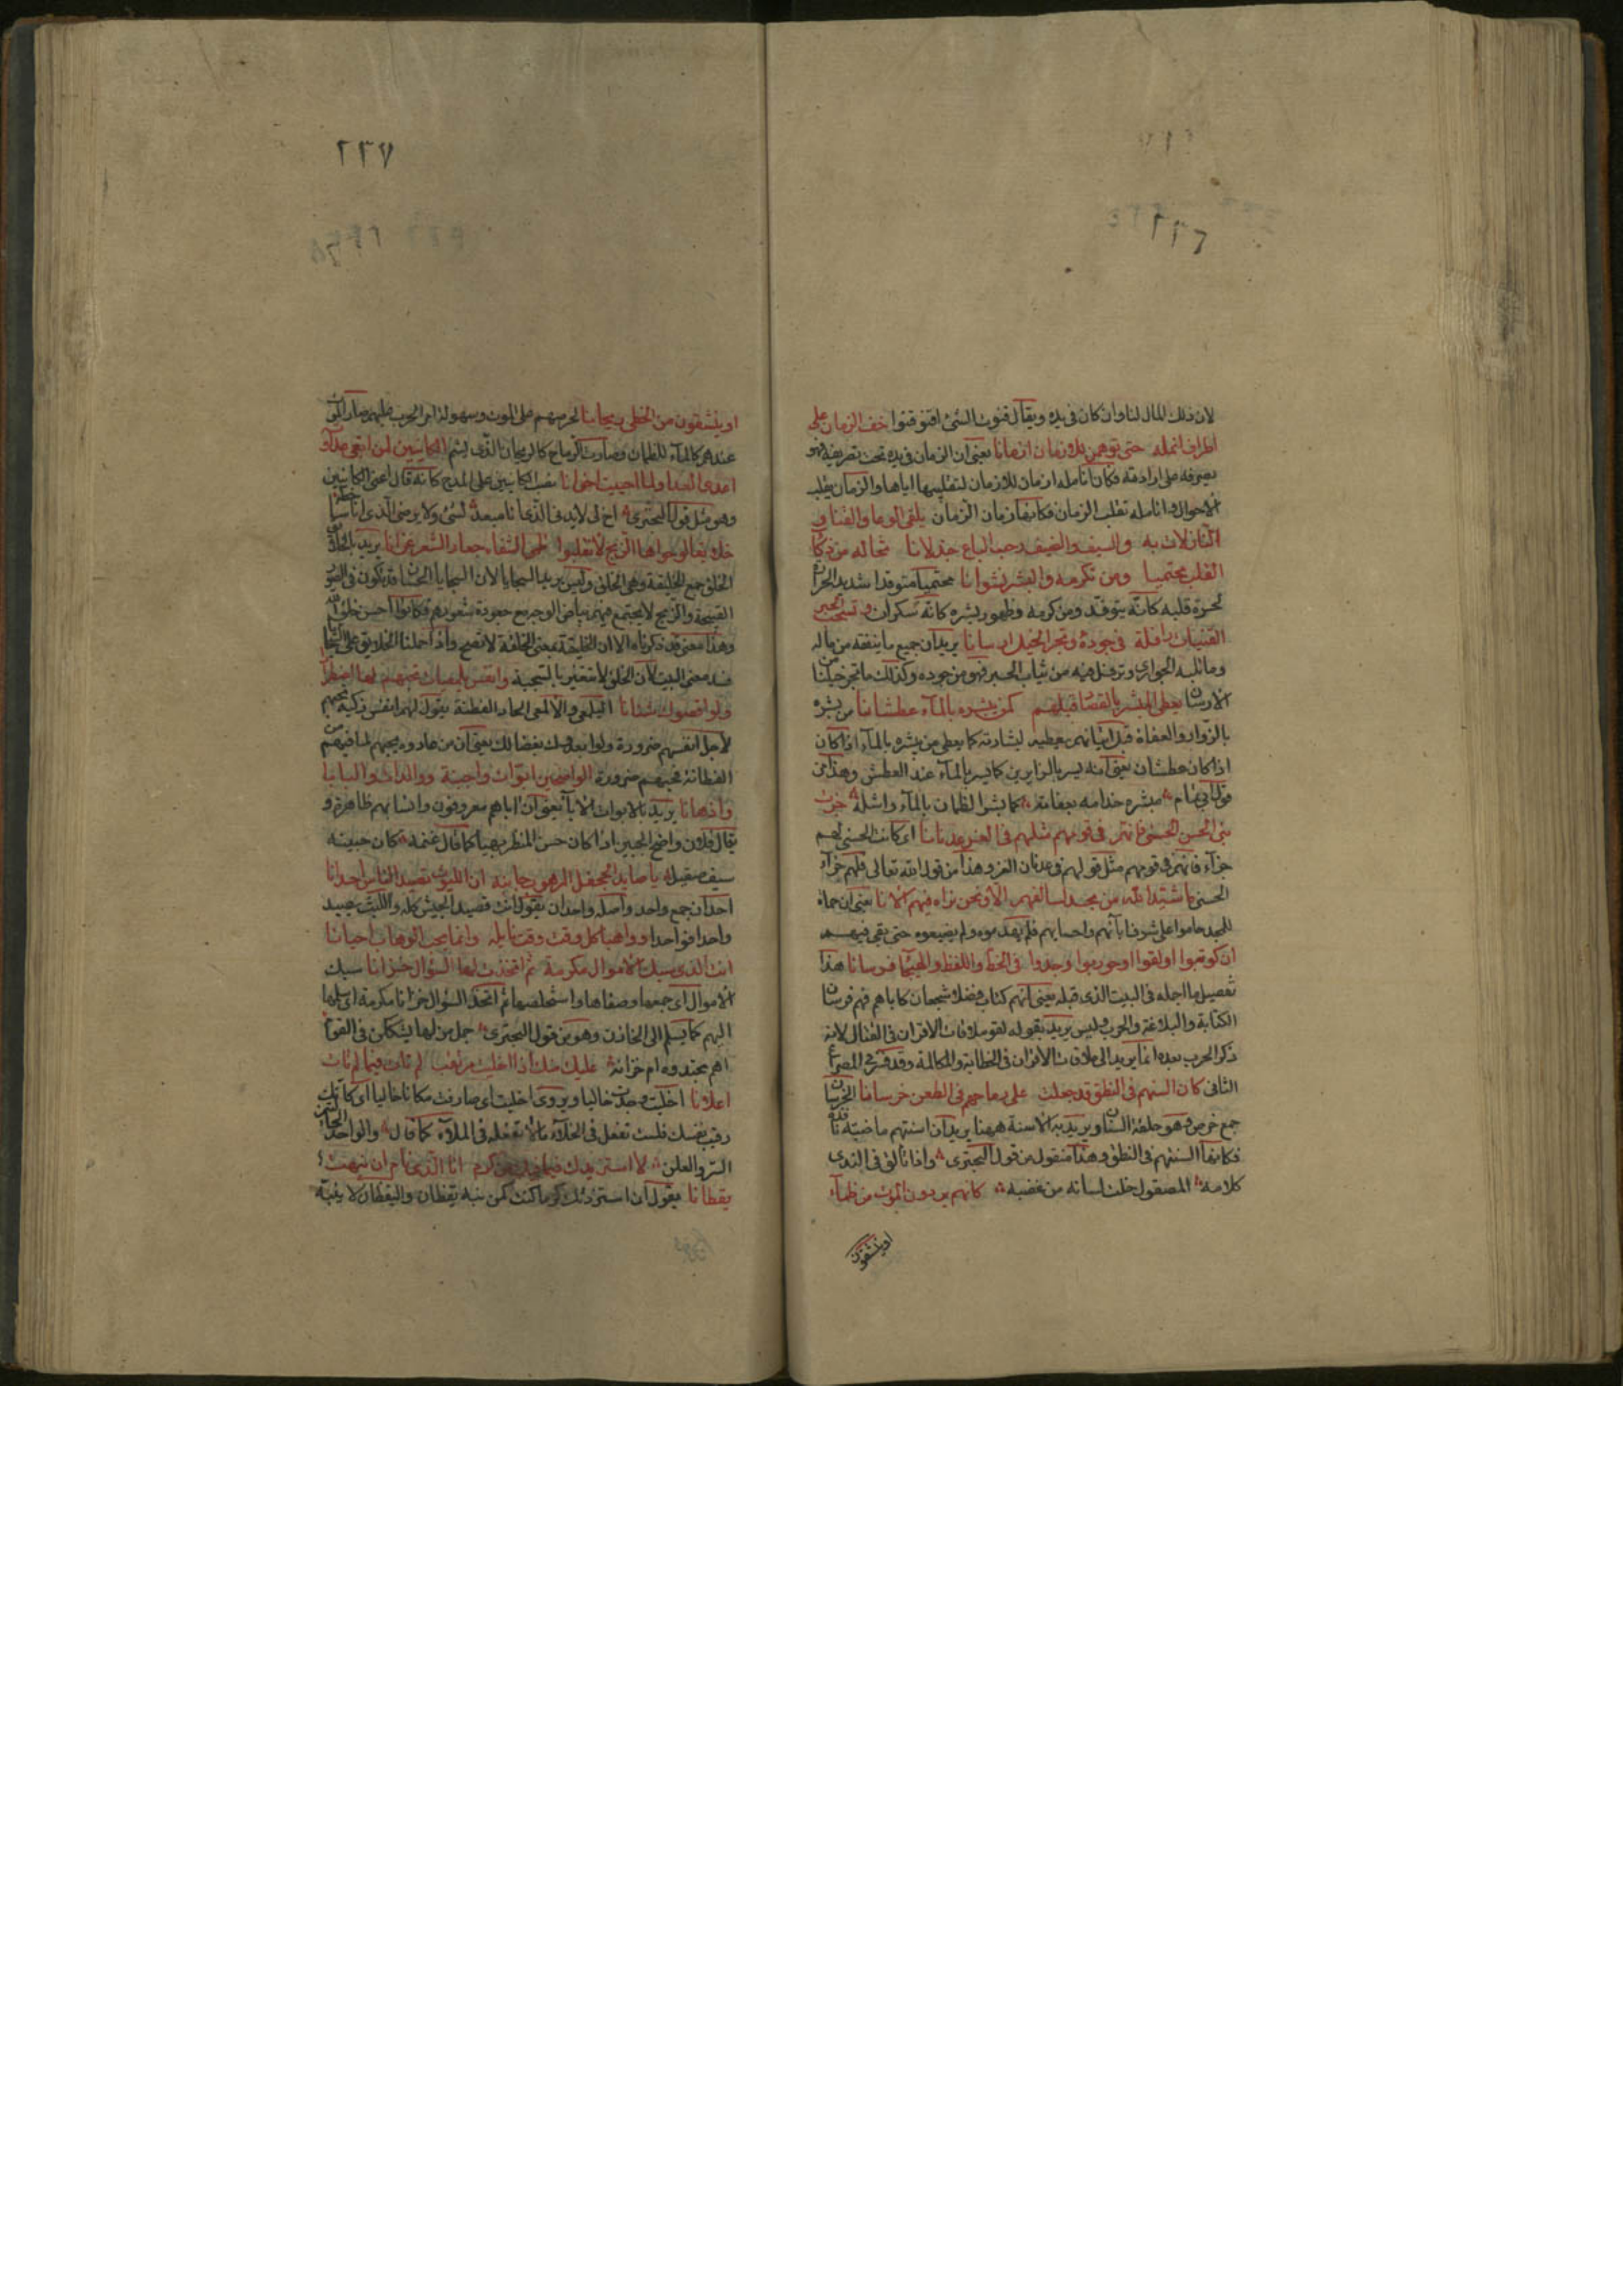 ٢٢٦
لان ذلك المال لنا وان كان فى يده ويقال قنوت الشئ اقنو قنوا خف الزمان على
اطراف انمله حتى توهمن للازمان ازمانا يعنى ان الزمان فى يده تحت تصريفه فهو
يصرفه على ارادته فكان انامله ازمان للازمان لتقليبها اياها والزمان يقلب
الاحوال وانامله تقلب الزمان فكانها زمان الزمان يلقى الوغا والقنا و
النازلات به والسيف والضيف رحب الباع جذلانا تخاله من ذكاء
القلب محتميا ومن تكرمه والبشر نشوانا محتميا متوقدا شديد الحرارة
لحرة قلبه كانه يتوقد ومن كرمه وظهور بشره كانه سكران وتسحب الحبر
القينات رافلة فى جوده وتجر الخيل ارسانا يريد ان جميع ما ينفقه من ماله
وما تلبسه الجوارى وترفل فيه من ثياب الحبر فهو من جوده وكذلك ما تجر خيلنا من
الارسان يعطى المبشر بالقصاد قبلهم كمن يبشره بالماء عطشانا من بشره
بالزوار والعفاة قبل اتيانهم يعطيه لبشارته كما يعطى من بشره بالماء اذا كان
اذا كان عطشان يعنى انه يسر بالزايرين كما يسر بالماء عند العطش وهذا من
قول ابى تمام مبشره خدامه بعفاته كما بشر الظمان بالماء واشله جزت
بنى الحسن الحسنى فانهم فى قومهم مثلهم فى الغر عدنانا اى كانت الحسنى لهم
جزاء فانهم فى قومهم مثل قولهم فى عدنان الغر وهذا من قول الله تعالى فلهم جزاء
الحسنى ما شيد الله من مجد لسالفهم الا ونحن نراه فيهم الانا يعنى ان حماة
المجد حاموا على شرف آبائهم واحسابهم فلم يهدموه ولم يضيعوه حتى بقى فيهم
ان كوتبوا او لقوا او حوربوا وجدوا فى الخط واللفظ والهيجا فرسانا هذا
تفصيل ما اجله فى البيت الذى قبله يعنى انهم كتاب فضلا شجعان كآباهم فهم فرسان
الكتابة والبلاغة والحرب وليس يريد بقوله لقوا ملاقات الاقران فى القتال لانه
ذكر الحرب بعده انما يريد الى ملاقات الاقران فى الخطابة والمكالمة وقد فسر فى المصراع
الثانى كان السنهم فى النطق قد جعلت على رماحهم فى الطعن خرسانا الخرسان
جمع خرص وهو حلقة السنان ويريد به الاسنة ههنا يريد ان اسنتهم ماضية نافذة
فكانها السنتهم فى النطق وهذا منقول من قول البحترى واذا تالق فى الندى
كلامه المصقول خلت لسانه من عضبه كانهم يردون الموت من ظماء
او ينشقون
٢٢٧
او ينشقون من الخطى ريحانا لحرصهم على الموت وسهولة امر الحرب عليهم صار الموت
عندهم كالماء للظمان وصارت الرماح كالريحان الذى يشم الكاينين لمن ابغى عداوته
اعدى العدا ولما احببت اخوانا نصب الكاينين على المدح كانه قال اعنى الكاينين
وهو مثل قول البحترى اخ لى لا يدنى الذى انا مبعد لشئ ولا يرضى الذى انا ساخط
خلايقا لو حواها الزنج لانقلبوا ظمى الشفاه جعاد الشعر غرانا يريد بالخلايق
الخلق جمع الخليقة وهى الخلق وليس يريد السجايا لان السجايا الحسان قد تكون فى الصور
القبيحة والزنج لا يجتمع فيهم بياض الوجوه مع جعودة شعورهم فكانوا احسن خلق الله
وهذا معنى قد ذكرناه الا ان الخليقة بمعنى الخلقة لا تصح واذا حملنا الخلايق على السجايا
فسد معنى البيت لان الخلق لا تتغير بالسجية وانفس يلمعيات تحبهم لها اضطرارا
ولو اقصوك شنانا اليلمعى والالمعى الحاد الفطنة يقول لهم انفس ذكية تحبهم
لاجل انفسهم ضرورة ولو ابعدوك بغضا لك يعنى ان من عادوه يحبهم لما فيهم من
الفطانة فحبهم ضرورة الواضحين ابوات واجبنة ووالدات والبابا
واذهانا يريد بالابوات الآباء يعنى ان اباهم معروفون وانسابهم ظاهرة و
يقال فلان واضح الجبين اذا كان حسن المنظر بهيا كما قال عنمه كان جبينه
سيف صقيل يا صايد الجحفل المرهوب جانبه ان الليوث تصيد الناس احدانا
احدان جمع واحد واصله واحدان يقول انت تصيد الجيش كله والليث يصيد
واحدا فواحدا وواهبا كل وقت وقت نايله وانما يهب الوهاب احيانا
انت الذى سبك الاموال مكرمة ثم اتخذت لها السؤال خزانا سبك
الاموال اى جمعها وصفاها واستخلصها ثم اتخذ السؤال خزانا مكرمة اى سلمها
اليهم كما يسلم الى الخازن وهو من قول البحترى جمل من لها يشككن فى القوم
اهم مجتدوه ام خزانه عليك منك اذا اخليت مرتقب لم تات فيما لم تات
اعلانا اخليت وجدت خاليا ويروى اخليت اى صادفت مكانا خاليا اى كانك
رقيب نفسك فلست تفعل فى الخلاء ما لا تفعله فى الملاء كما قال والواحد الحالين
السر والعلن لا استزيدك فيما فيك من كرم انا الذى نام ان نبهت
يقظانا يقول ان استزدتك كرما كنت كمن نبه يقظان واليقظان لا ينبه